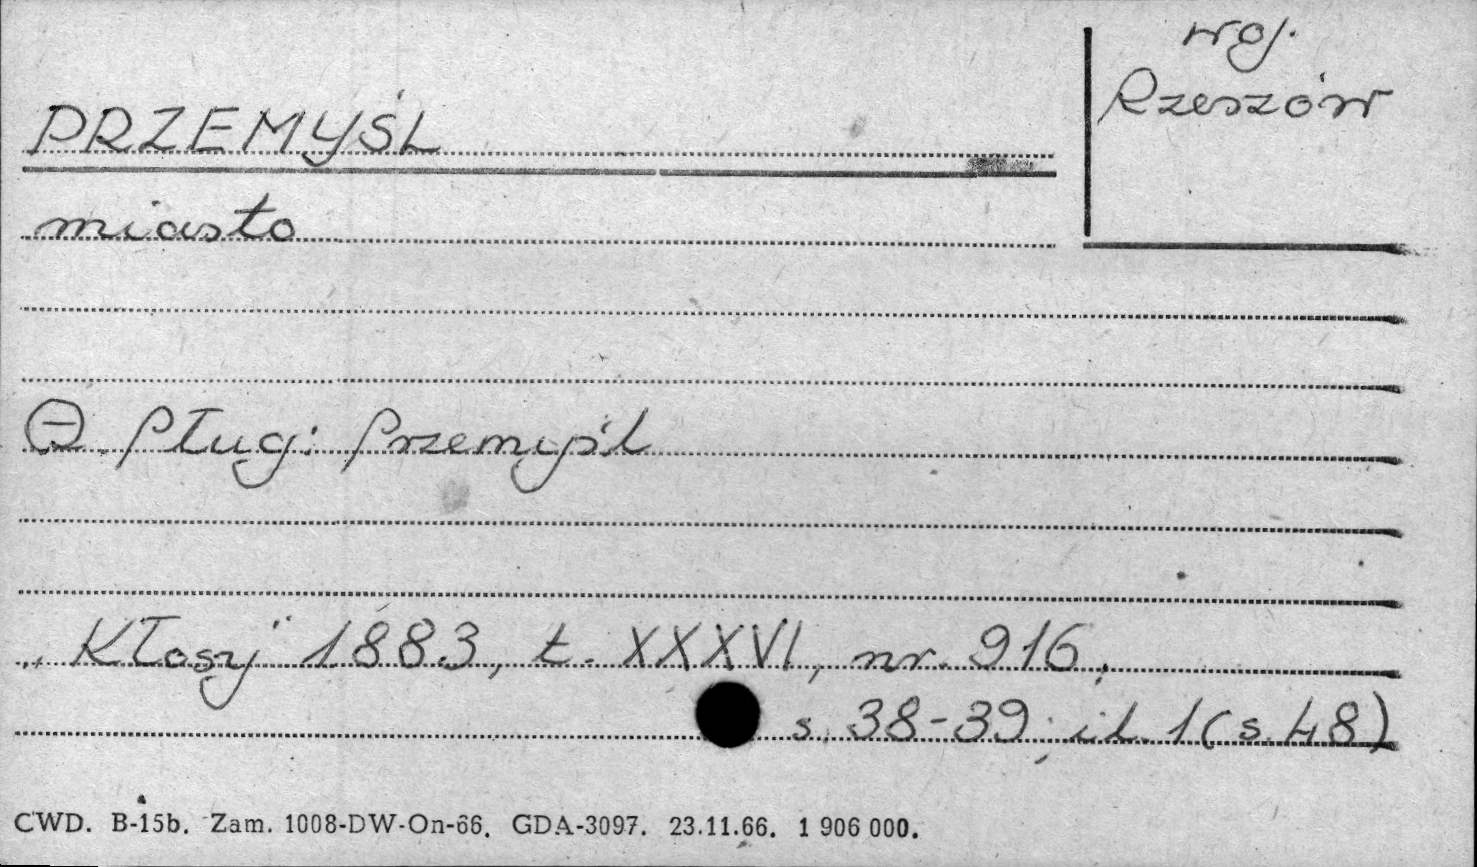 woj.
Rzeszów
PRZEMYŚL
miasto
Ⓗ Pług: Przemyśl
„Kłosy" 1883, t. XXXVI, nr. 916,
s. 38-39; il. 1 (s. 48)
CWD. B-15b. Zam. 1008-DW-On-66. GDA-3097. 23.11.66. 1 906 000.